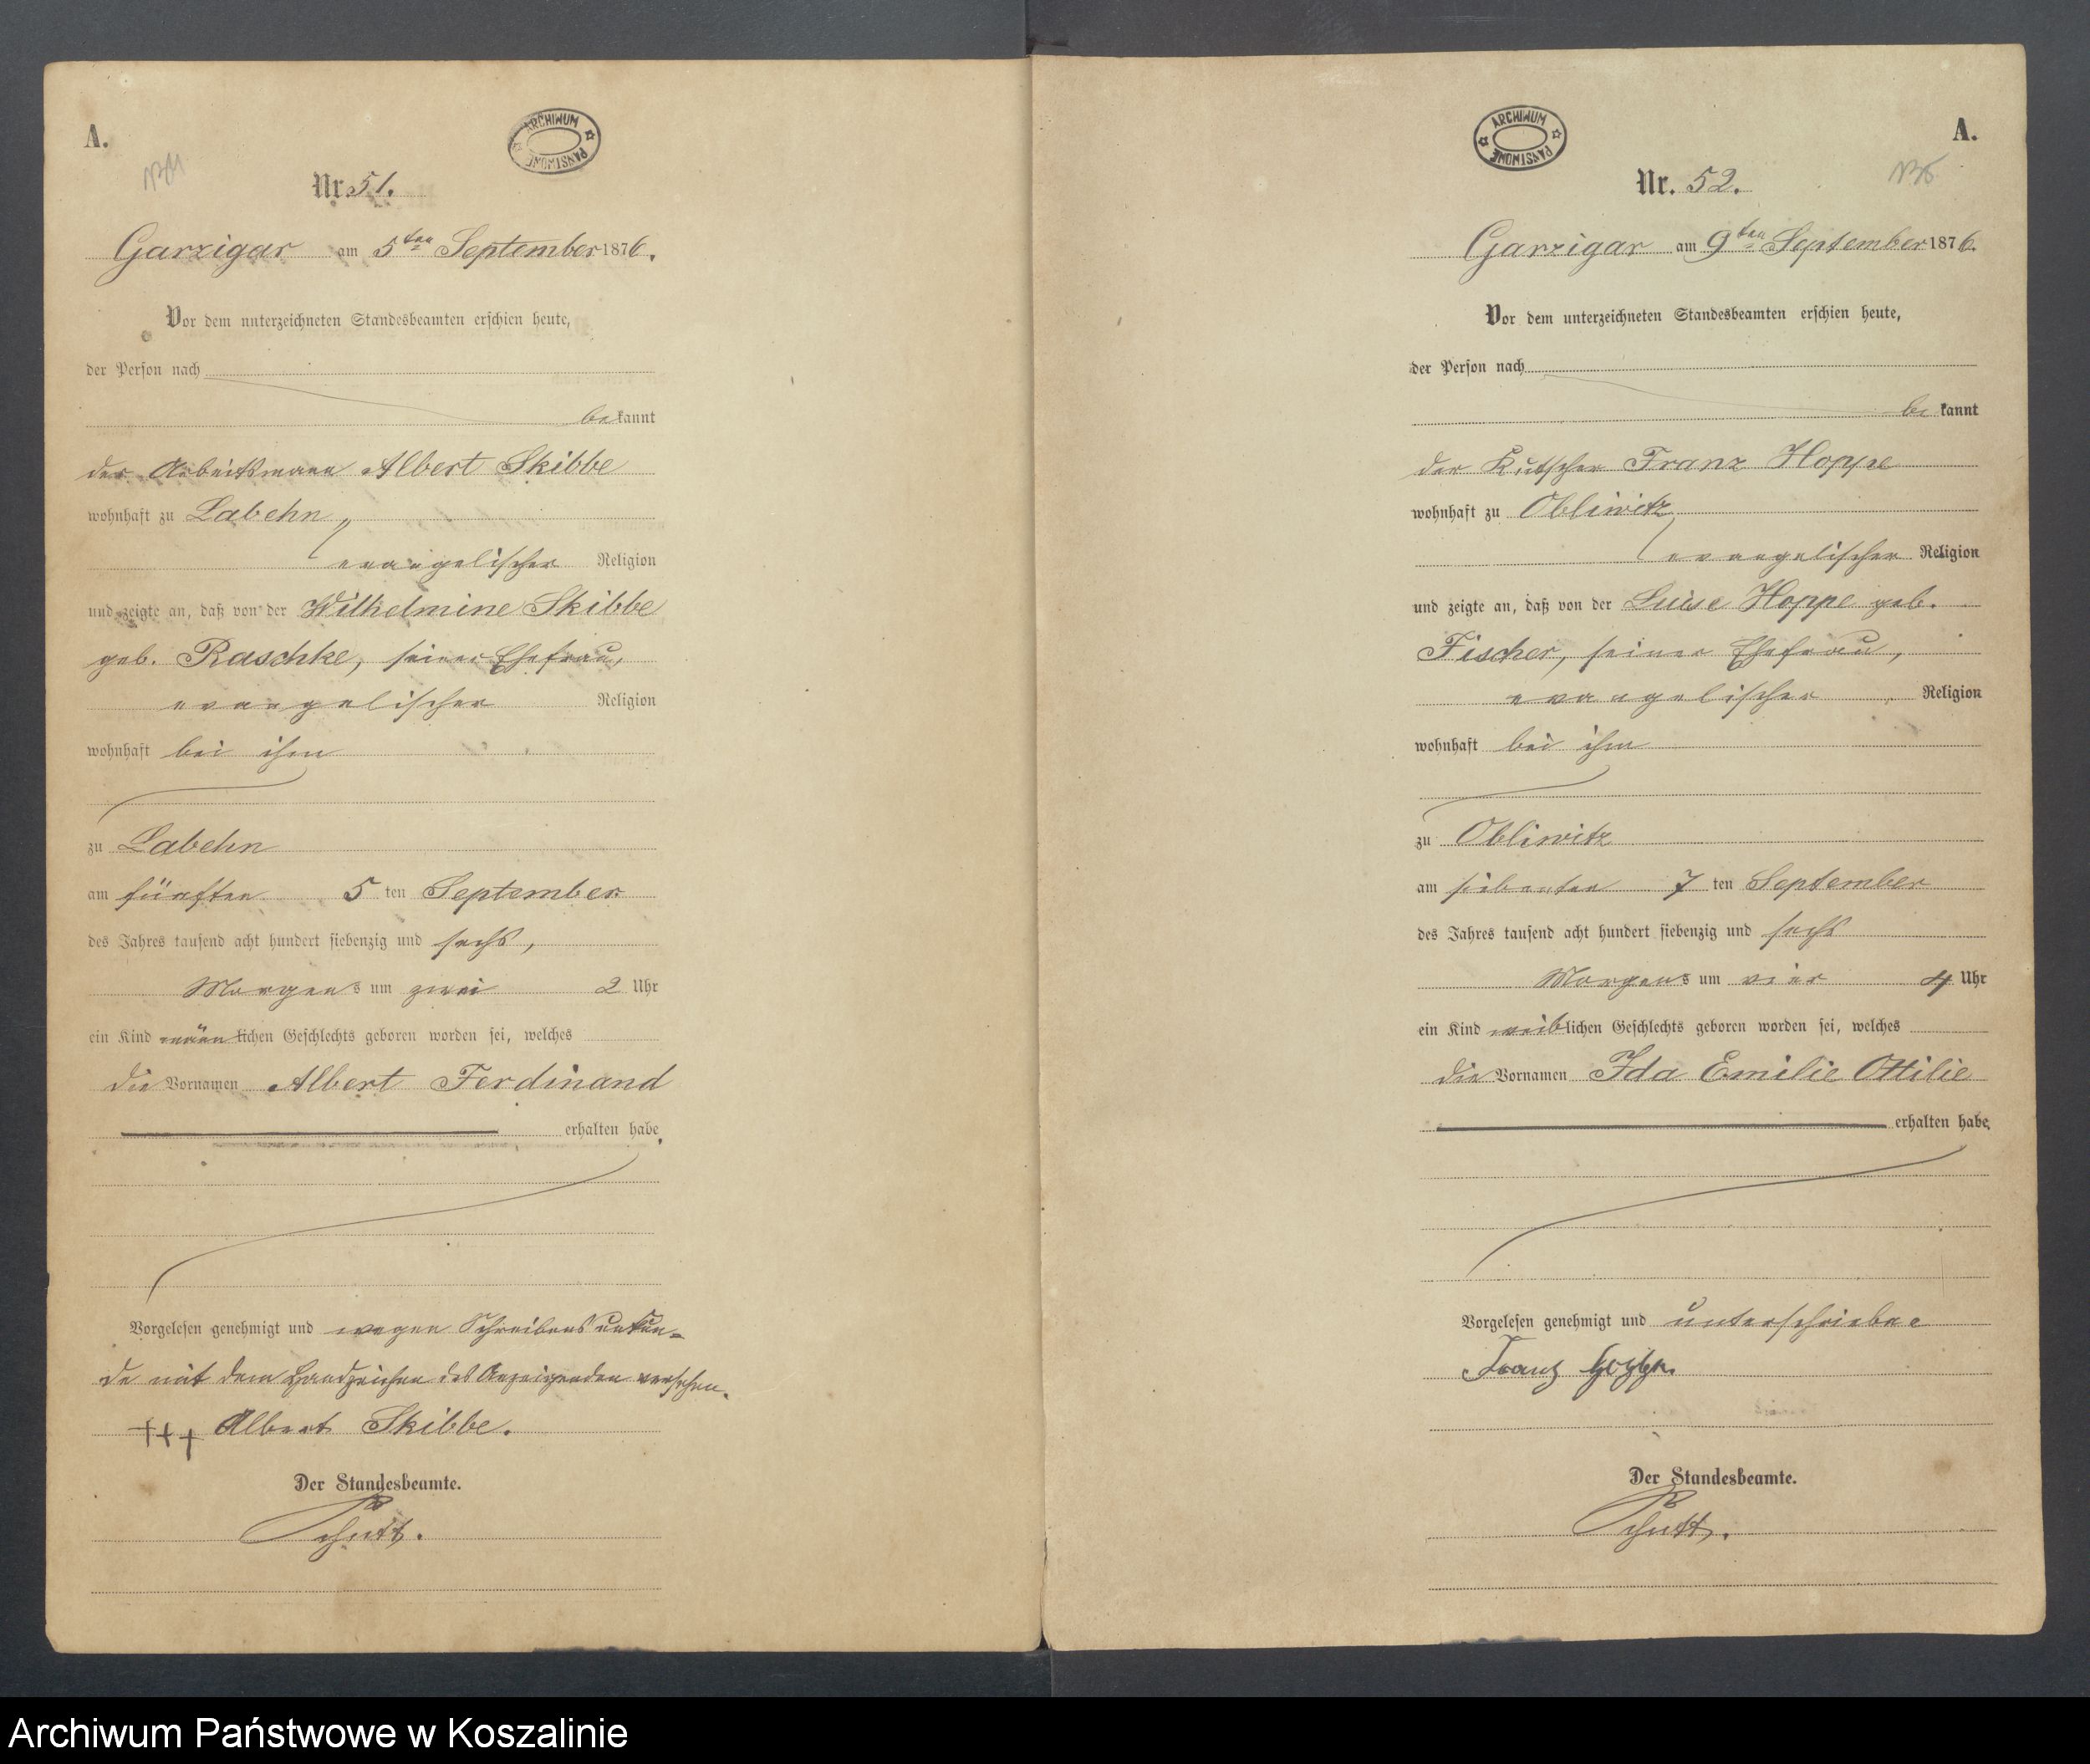 A.
ARCHIWUM PAŃSTWOWE
Nr. 51.
Garzigar am 5ten September 1876.
Vor dem unterzeichneten Standesbeamten erschien heute,
der Person nach
bekannt
der Arbeitsmann Albert Skibbe
wohnhaft zu Labehn,
evangelischer Religion
und zeigte an, daß von der Wilhelmine Skibbe
geb. Raschke, seiner Ehefrau,
evangelischer Religion
wohnhaft bei ihm
zu Labehn
am fünften 5 ten September
des Jahres tausend acht hundert siebenzig und sechs,
Morgens um zwei 2 Uhr
ein Kind männlichen Geschlechts geboren worden sei, welches
die Vornamen Albert Ferdinand
erhalten habe.
Vorgelesen genehmigt und wegen Schreibensunkun=
de mit dem Handzeichen des Anzeigenden versehen.
+++ Albert Skibbe.
Der Standesbeamte.
A.
ARCHIWUM PAŃSTWOWE
Nr. 52.
Garzigar am 9ten September 1876.
Vor dem unterzeichneten Standesbeamten erschien heute,
der Person nach
bekannt
der Kutscher Franz Hoppe
wohnhaft zu Obliwitz
evangelischer Religion
und zeigte an, daß von der Luise Hoppe geb.
Fischer, seiner Ehefrau,
evangelischer Religion
wohnhaft bei ihm
zu Obliwitz
am siebenten 7 ten September
des Jahres tausend acht hundert siebenzig und sechs
Morgens um vier 4 Uhr
ein Kind weiblichen Geschlechts geboren worden sei, welches
die Vornamen Ida Emilie Ottilie
erhalten habe.
Vorgelesen genehmigt und unterschrieben
Franz Hoppe.
Der Standesbeamte.
Archiwum Państwowe w Koszalinie